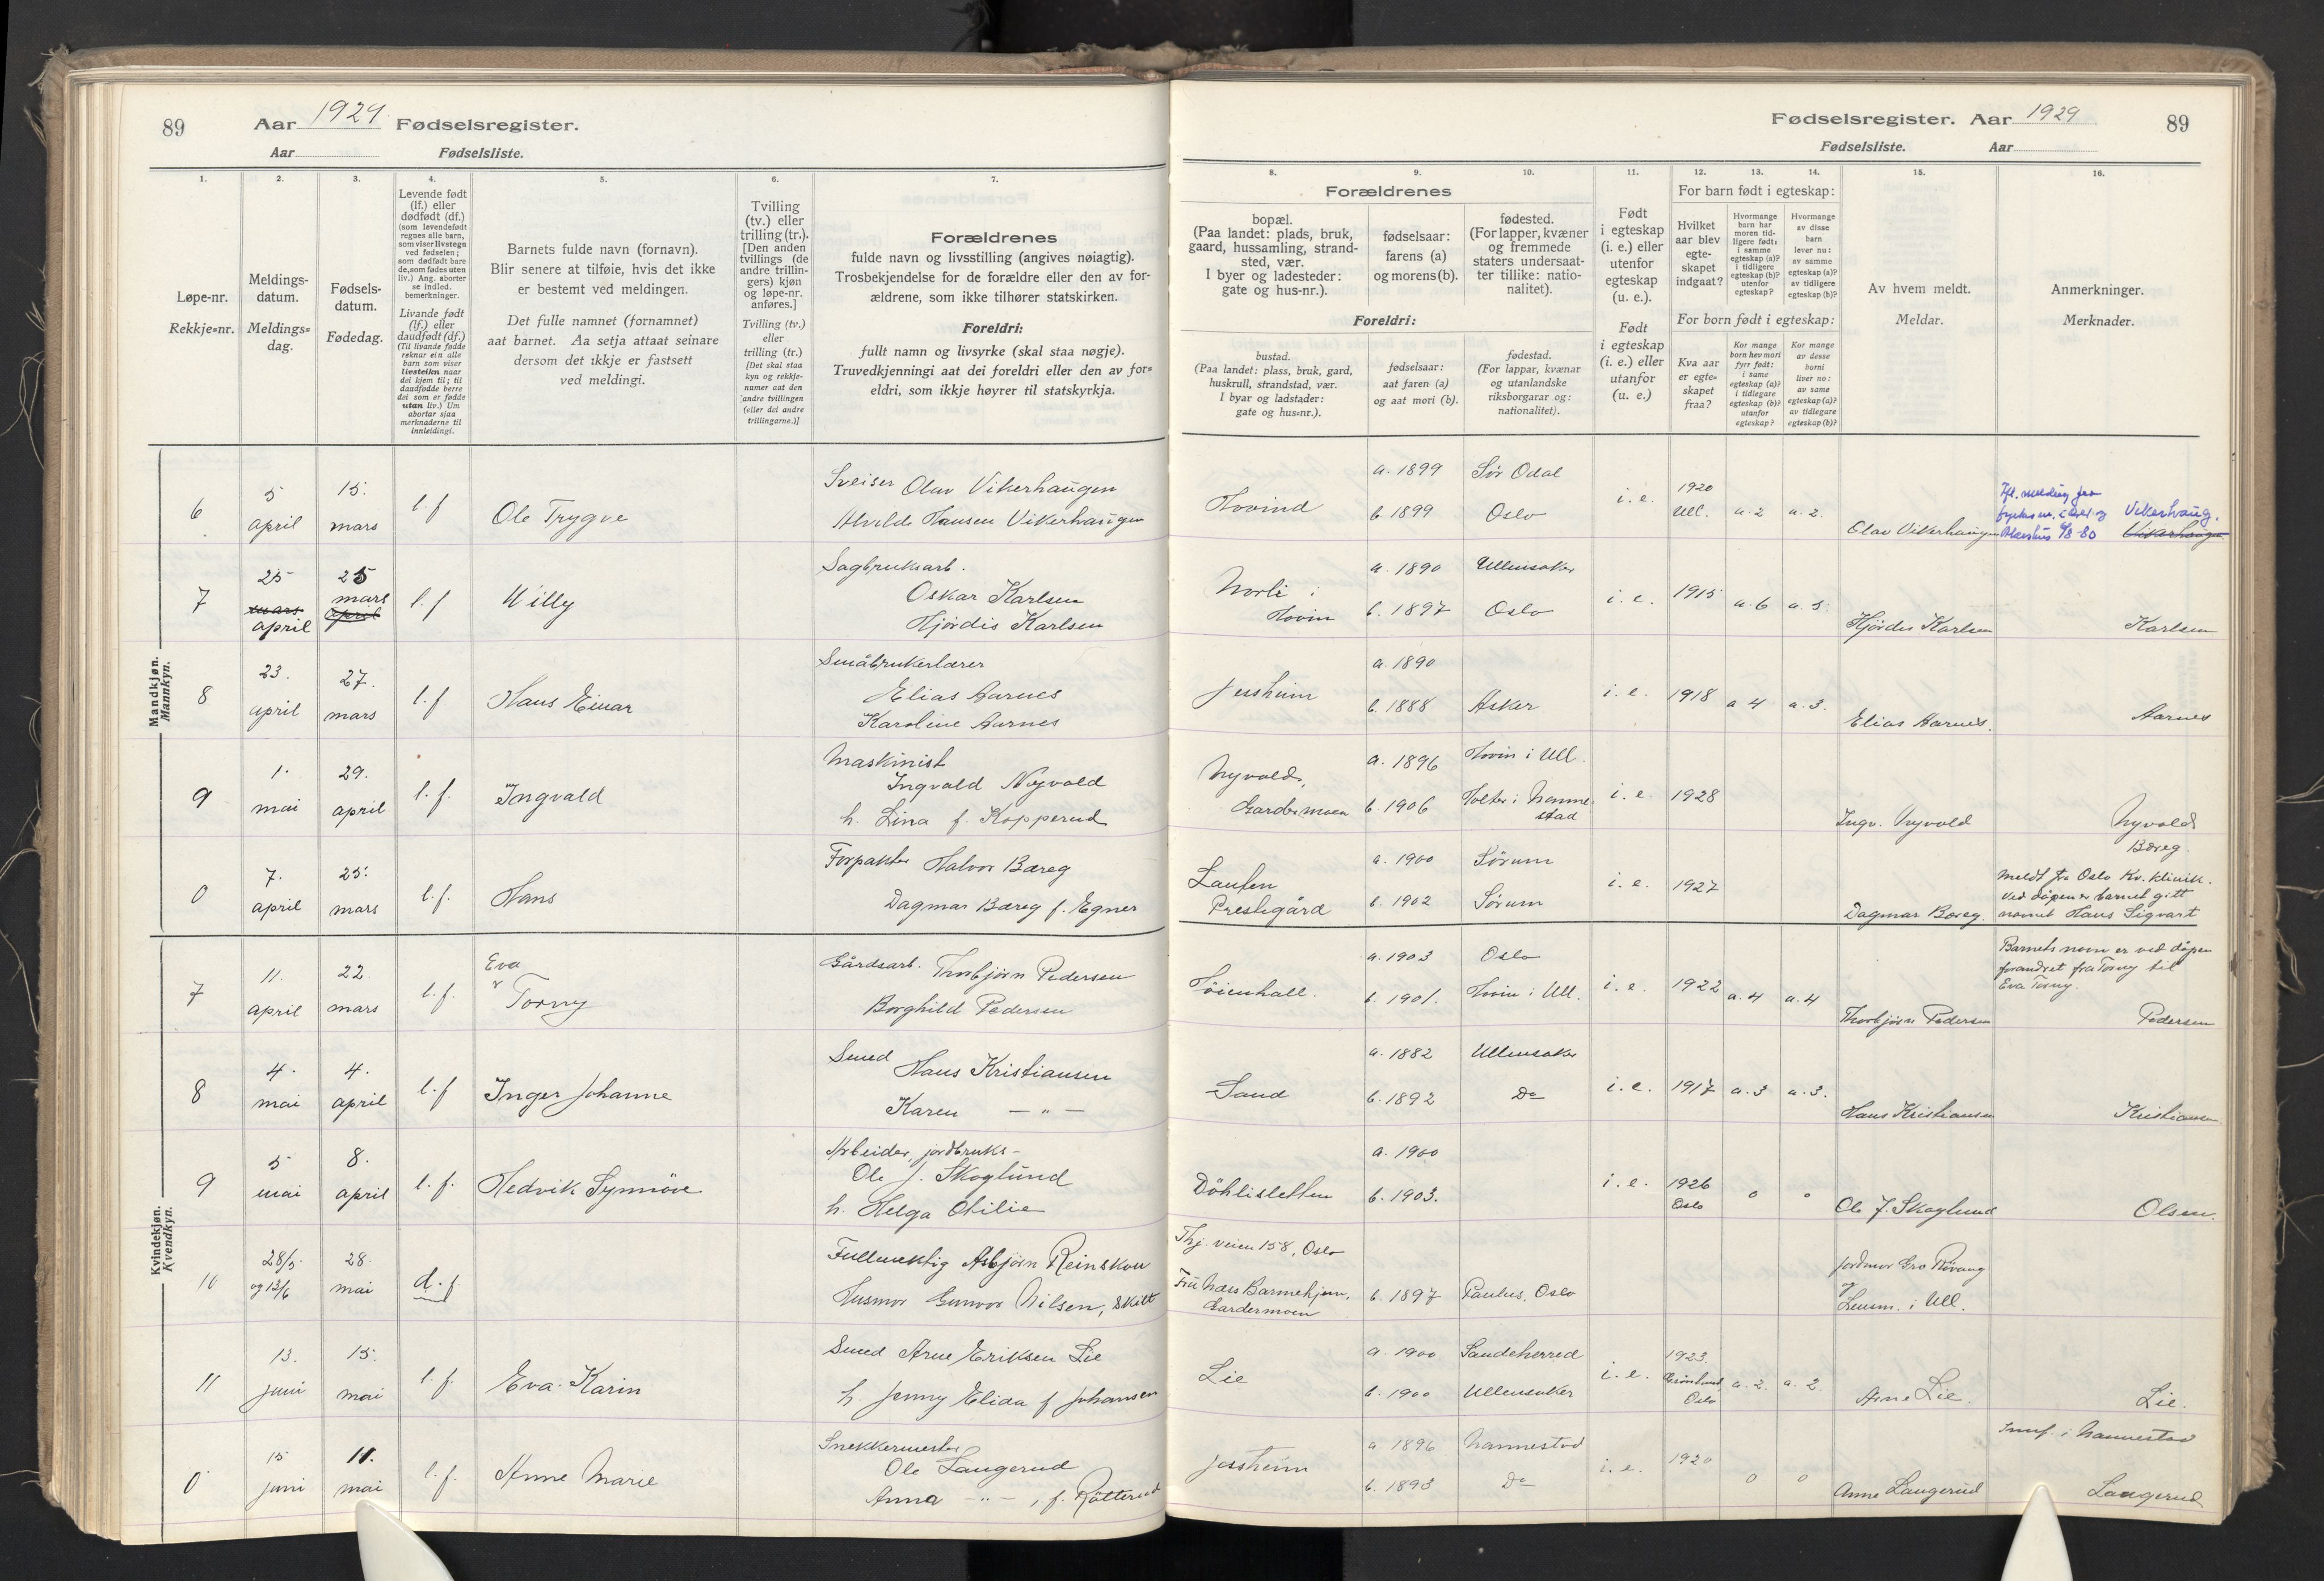 89
Aar 1929 Fødselsregister.
Aar Fødselsliste.
1.
2.
3.
4.
5.
6.
7.
Løpe-nr.
Rekkje=nr.
Meldings-
datum.
Meldings=
dag.
Fødsels-
datum.
Fødedag.
Levende født
(lf.) eller
dødfødt (df.)
(som levendefødt
regnes alle barn,
som viser livstegn
ved fødselen;
som dødfødt bare
de, som fødes uten
liv.) Ang. aborter
se indled.
bemerkninger.
Livande født
(lf.) eller
daudfødt (df.)
(Til livande fødde
reknar ein alle
barn som viser
livsteikn naar
dei kjem til; til
daudfødde berre
dei som er fødde
utan liv.) Um
abortar sjaa
merknaderne til
innleidingi.
Barnets fulde navn (fornavn).
Blir senere at tilføie, hvis det ikke
er bestemt ved meldingen.
Det fulle namnet (fornamnet)
aat barnet. Aa setja attaat seinare
dersom det ikkje er fastsett
ved meldingi.
Tvilling
(tv.) eller
trilling (tr.).
[Den anden
tvillings (de
andre trillin-
gers) kjøn
og løpe-nr.
anføres.]
Tvilling (tv.)
eller
trilling (tr.)
[Det skal staa
kyn og rekkje-
numer aat den
andre tvillingen
(eller dei andre
trillingarne.)]
Forældrenes
fulde navn og livsstilling (angives nøiagtig).
Trosbekjendelse for de forældre eller den av for-
ældrene, som ikke tilhører statskirken.
Foreldri:
fullt namn og livsyrke (skal staa nøgje).
Truvedkjenningi aat dei foreldri eller den av for=
eldri, som ikkje høyrer til statskyrkja.
Mandkjøn.
Mannkyn.
6
5 april
15. mars
l.f
Ole Trygve
Sveiser Olav Vikerhaugen
Hansen Vikerhaugen
7
25 mars april
25 mars april
l.f
Willy
Sagbruksarb.
Oskar Karlsen
Hjørdis Karlsen
8
23. april
27. mars
l.f
Hans Einar
Småbrukerlærer
Elias Aarnes
Karoline Aarnes
9
1. mai
29. april
l.f.
Ingvald
Maskinist
Ingvald Nyvold
h. Lina f. Kopperud
0
7. april
25. mars
l.f.
Hans
Forpakter Halvor Bæreg
Dagmar Bæreg f. Egner
Kvindekjøn.
Kvendkyn.
7
11. april
22 mars
l.f.
Eva
Torny
Gårdsarb. Thorbjørn Pedersen
Borghild Pedersen
8
4. mai
4. april
l.f
Inger Johanne
Smed Hans Kristiansen
Karen — " —
9
5 mai
8. april
l.f.
Hedvik Synnöve
Arbeider, jordbruks-
Ole J. Skoglund
h. Helga Otilie
10
28/5 og 13/6
28. mai
d.f.
Fullmektig Asbjørn Reinskou
Husmor Gunvor Nilsen, skilt
11
13. juni
15. mai
l.f.
Eva Karin
Smed Arne Eriksen Lie
h. Jenny Elida f Johansen
0
15 juni
11. mai
l.f.
Anne Marie
Snekkermester
Ole Laugerud
Anna — " —, f. Rotterud
Fødselsregister. Aar 1929
89
Fødselsliste. Aar
8.
9.
10.
11.
12.
13.
14.
15.
16.
Forældrenes
bopæl.
(Paa landet: plads, bruk,
gaard, hussamling, strand-
sted, vær.
I byer og ladesteder:
gate og hus-nr.).
fødselsaar:
farens (a)
og morens (b).
fødested.
(For lapper, kvæner
og fremmede
staters undersaat-
ter tillike: natio-
nalitet).
Foreldri:
bustad.
(Paa landet: plass, bruk, gard,
huskrull, strandstad, vær.
I byar og ladstader:
gate og hus=nr.).
fødselsaar:
aat faren (a)
og aat mori (b).
fødestad.
(For lappar, kvænar
og utanlandske
riksborgarar og:
nationalitet).
Født
i egteskap
(i. e.) eller
utenfor
egteskap
(u. e.).
Født
i egteskap
(i. e.) eller
utanfor
(u. e.)
For barn født i egteskap:
Hvilket
aar blev
egte-
skapet
indgaat?
Hvormange
barn har
moren tid-
ligere født:
i samme
egteskap (a)?
i tidligere
egteskap (b)?
utenfor
egteskap?
Hvormange
av disse
barn
lever nu:
av samme
egteskap (a)?
av tidligere
egteskap (b)?
For born født i egteskap:
Kva aar
er egte=
skapet
fraa?
Kor mange
born hev mori
fyrr født:
i same
egteskap (a)?
i tidlegare
egteskap (b)?
utanfor
egteskap?
Kor mange
av desse
borni
liver no:
av same
egteskap (a)?
av tidlegare
egteskap (b)?
Av hvem meldt.
Meldar.
Anmerkninger.
Merknader.
Hovind
a. 1899 Sør Odal
b 1899 Oslo
i. e.
1920 Ull.
a 2
a. 2.
Olav Vikerhaugen
Ifl. melding fra
Akershus 6/8-80
Vikerhaug.
Vikerhaugen
Norli i Hovin
a. 1890 Ullensaker
b. 1897 Oslo
i. e.
1915
a. 6
a. 5
Hjørdis Karlsen
Karlsen
Jessheim
a. 1890
b. 1888 Asker
i. e.
1918
a 4
a. 3.
Elias Aarnes.
Aarnes
Nyvold, Gardermoen
a. 1896 Hovin i Ull.
b. 1906 Holter i Nannestad
i. e
1928
Ingv. Nyvold
Nyvold
Laufen Prestegård
a. 1900 Sørum
b. 1902 Sørum
i. e.
1927
Dagmar Bæreg.
Bæreg.
Meldt fra Oslo Kv. klinik.
Ved dåpen er barnet gitt
navnet Hans Sigvart
Höienhall.
a. 1903 Oslo
b. 1901. Hovin i Ull.
i. e.
1922
a. 4
a. 4
Thorbjørn Pedersen
Barnets navn er ved dåpen
forandret fra Torny til
Eva Torny.
Pedersen
Sand
a. 1882 Ullensaker
b. 1892 Do
i. e.
1917
a. 3
a. 3.
Hans Kristiansen
Kristiansen
Döhlisletten
a. 1900
b. 1903.
i. e.
1926 Oslo
0
0
Ole J. Skoglund
Olsen.
veien 158, Oslo
Fru Næs Barnehjem,
Gardermoen
b. 1897 Paulus, Oslo
Jordmor Gro Rövang
og
Lensm. i Ull.
Lie
a. 1900 Sandeherred
b. 1900 Ullensaker
i. e.
1923. Grönland, Oslo
a. 2.
a. 2.
Arne Lie.
Lie.
Jessheim
a 1896 Nannestad
b. 1893 Do
i. e.
1920
0
0
Anne Laugerud
i Nannestad
Laugerud